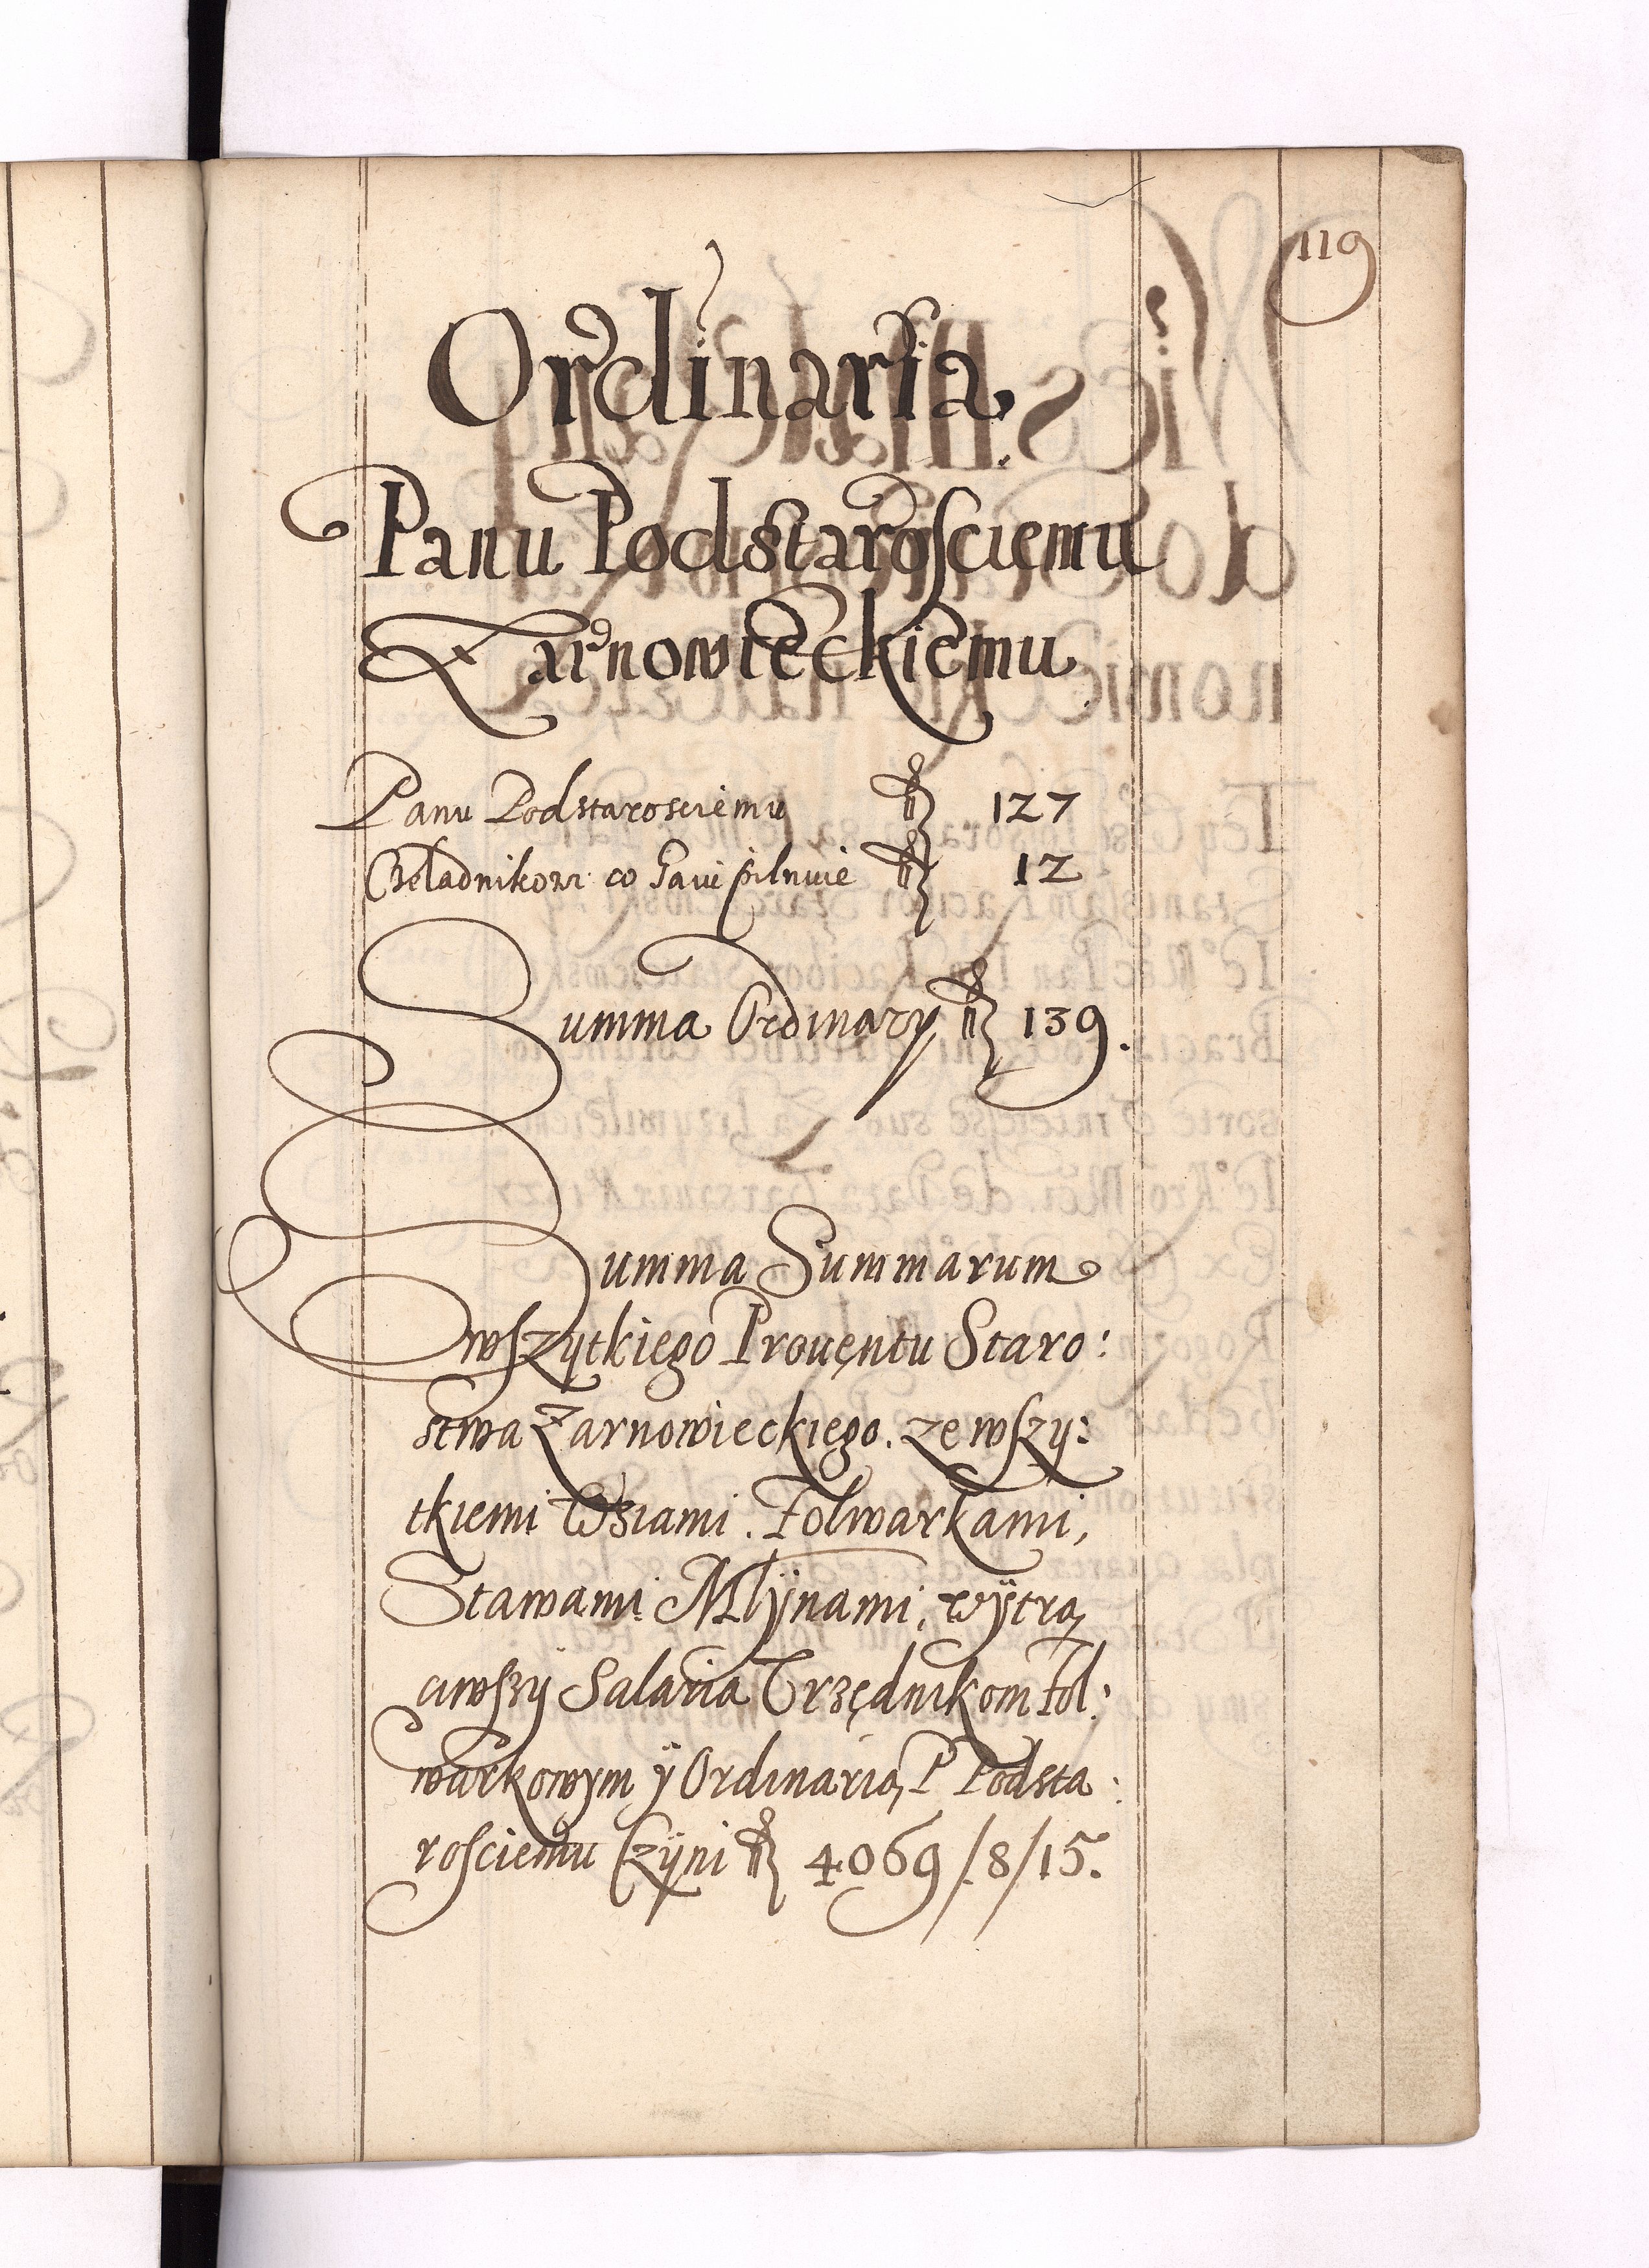 119
Ordinaria
Panu Podstarosciemu
Zarnowieckiemu
Panu Podstarosciemu fl 127
Czeladnikowi co pilnuie fl 12
Summa Ordinary fl 139.
Summa Summarum
wszytkiego Prouentu Staro:
stwa Zarnowieckiego. ze wszy:
tkiemi Wsiami. Folwarkami,
Stawami Mlÿnami, wÿtrą
ciwszÿ Salaria Vrzędnikom fol:
warkowym ÿ Ordinarią P Podsta:
rosciemu Czÿni fl 4069/8/15.